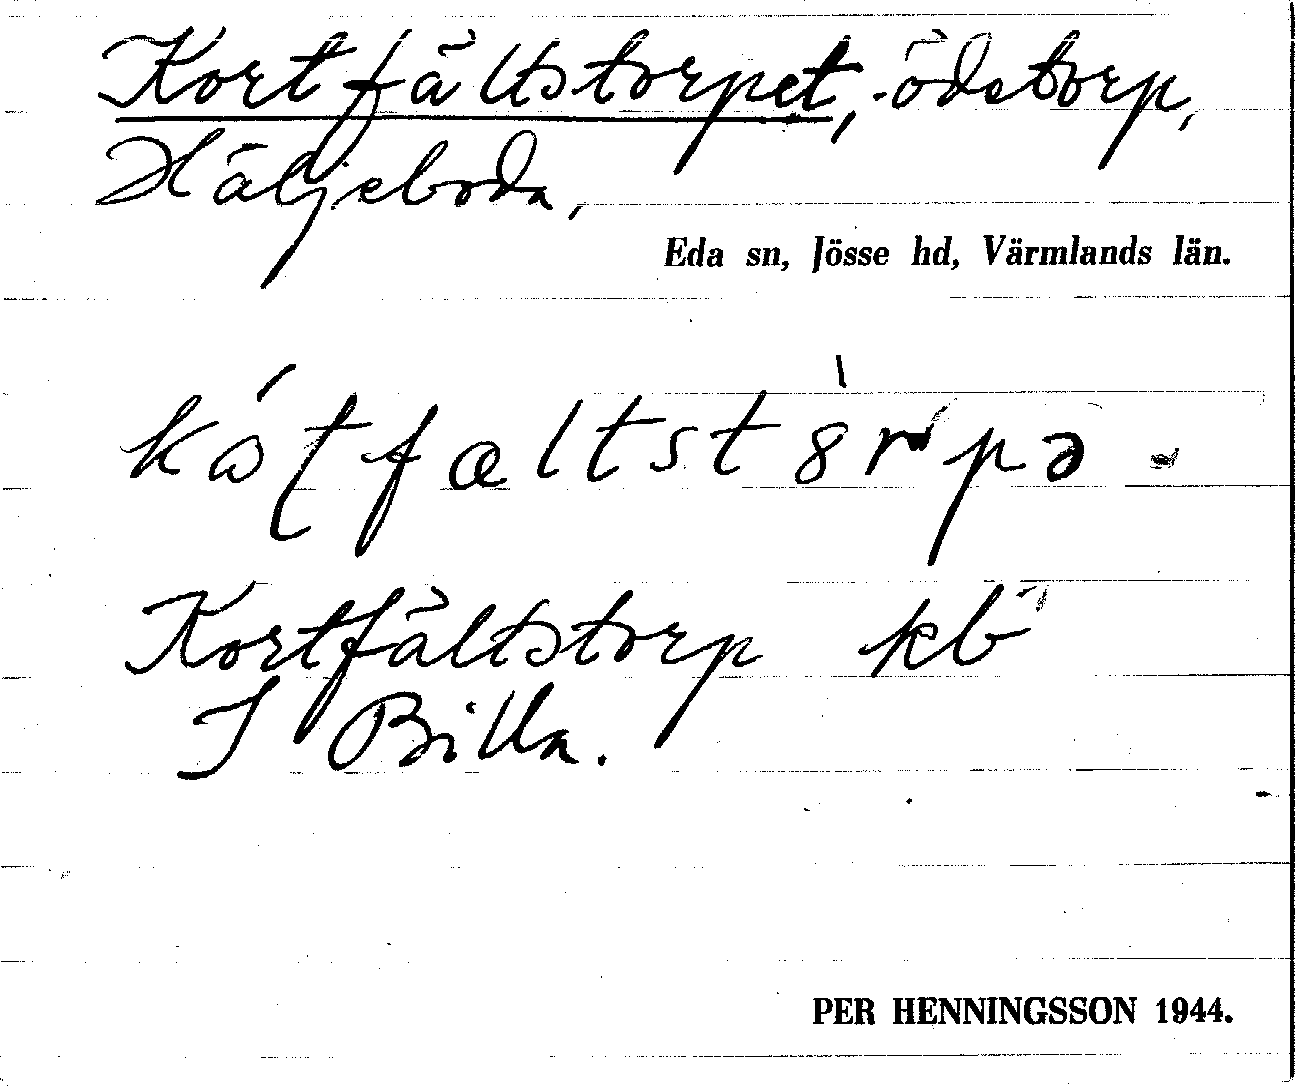 Kortfältstorpet, ödetorp,
Häljeboda,
Eda sn, Jösse hd, Värmlands län.
kóʈfæltstòrpə
Kortfältstorp kb
I Billa.
PER HENNINGSSON 1944.